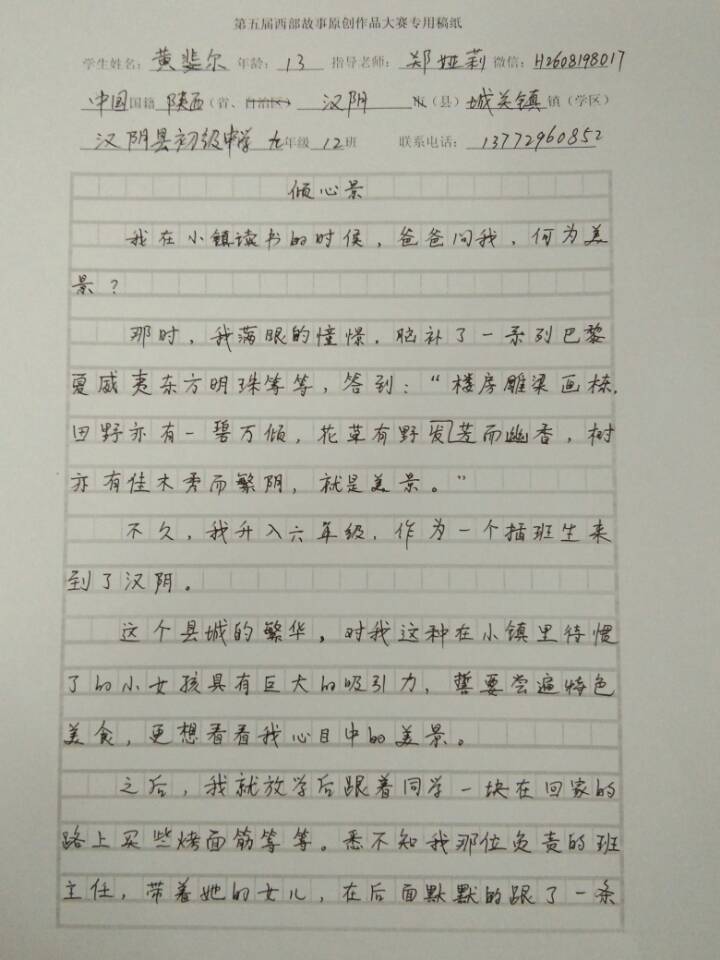 第五届西部故事原创作品大赛专用稿纸
学生姓名：黄斐尔 年龄：13 指导老师：郑娅莉 微信：H2608198017
中国国籍 陕西（省、自治区） 汉阴 市（县）城关镇 镇（学区）
汉阴县初级中学 九年级 12班 联系电话：13772960852
倾心景
我在小镇读书的时候，爸爸问我，何为美
景？
那时，我满眼的憧憬，脑补了一系列巴黎
夏威夷东方明珠等等，答到：“楼房雕梁画栋，
田野亦有一碧万倾，花草有野发芳而幽香，树
亦有佳木秀而繁阴，就是美景。”
不久，我升入六年级，作为一个插班生来
到了汉阴。
这个县城的繁华，对我这种在小镇里待惯
了的小女孩具有巨大的吸引力，誓要尝遍特色
美食，更想看看我心目中的美景。
之后，我就放学后跟着同学一块在回家的
路上买些烤面筋等等。悉不知我那位负责的班
主任，带着她的女儿，在后面默默的跟了一条